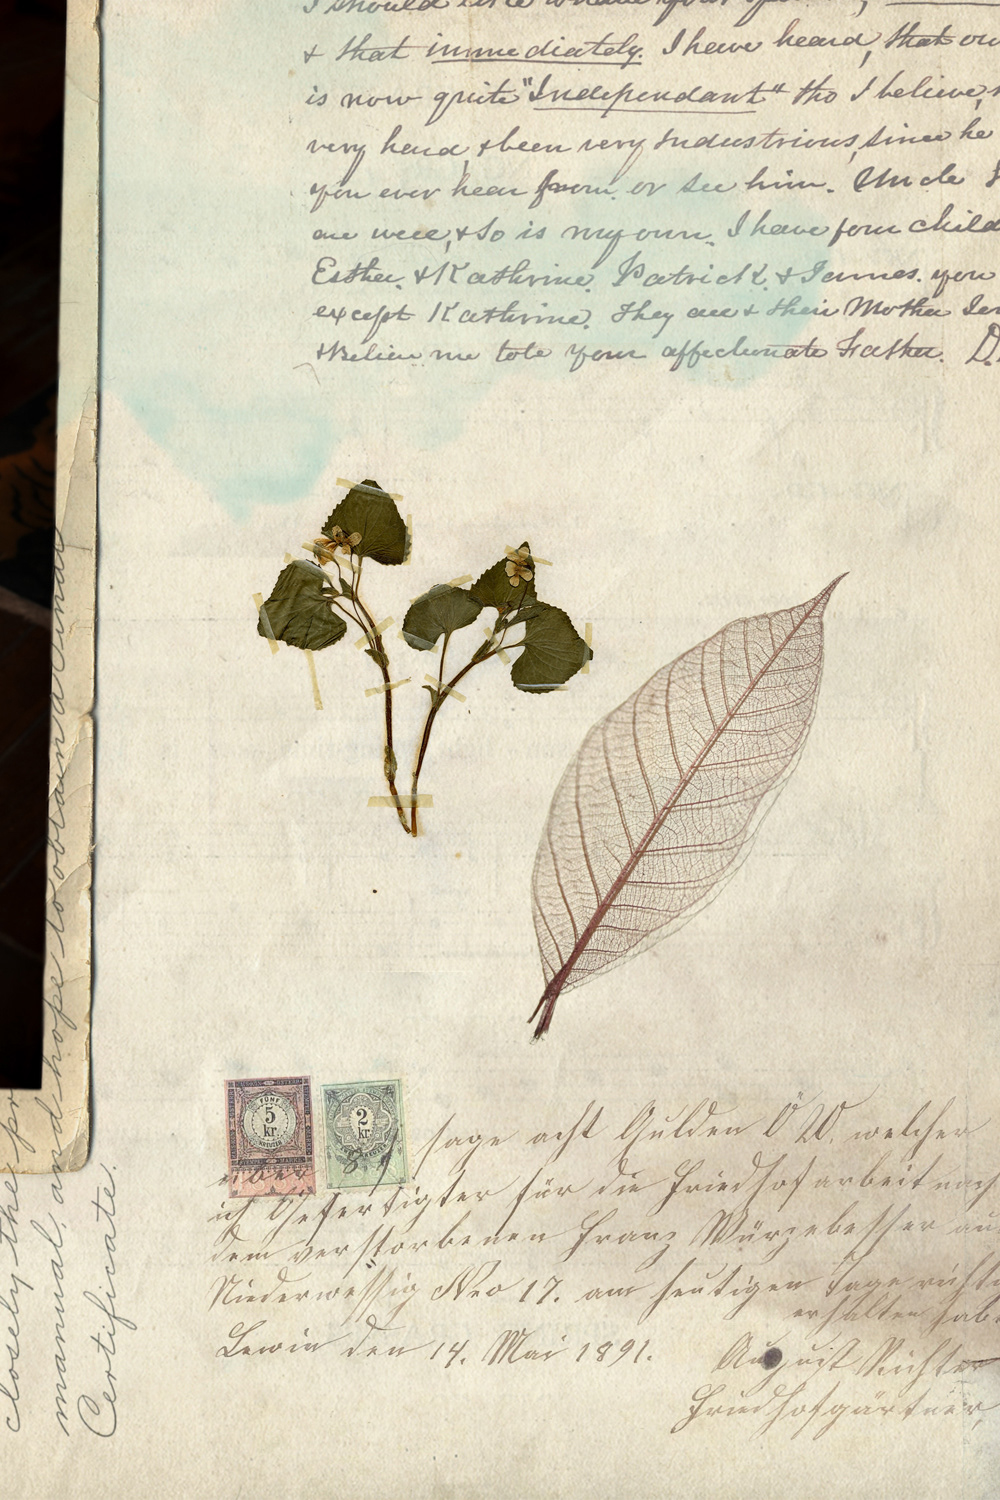 & that immediately. I have heard, that ou
is now quite "Independant" tho I believe,
very hard, & been very industrious, since he
you ever hear from, or see him. Uncle
are well, & so is my own. I have four child
Esther, & Kathrine, Patrick, & James. you
except Kathrine. They are & their Mother
& Believe me to be your affectionate Father. D.
FÜNF
5
kr.
KREUZER
2
kr.
über
sage acht Gulden Ö W. welcher
ich Gefertigter für die Friedhofarbeit nach
dem verstorbenen Franz Würzebesser aus
Niederwessig Nro 17. am heutigen Tage richti
erhalten hab
Lewin den 14. Mai 1891.
August Richter
Friedhofgärtner
closely the pr
manual, and hope to obtain a Final
Certificate.